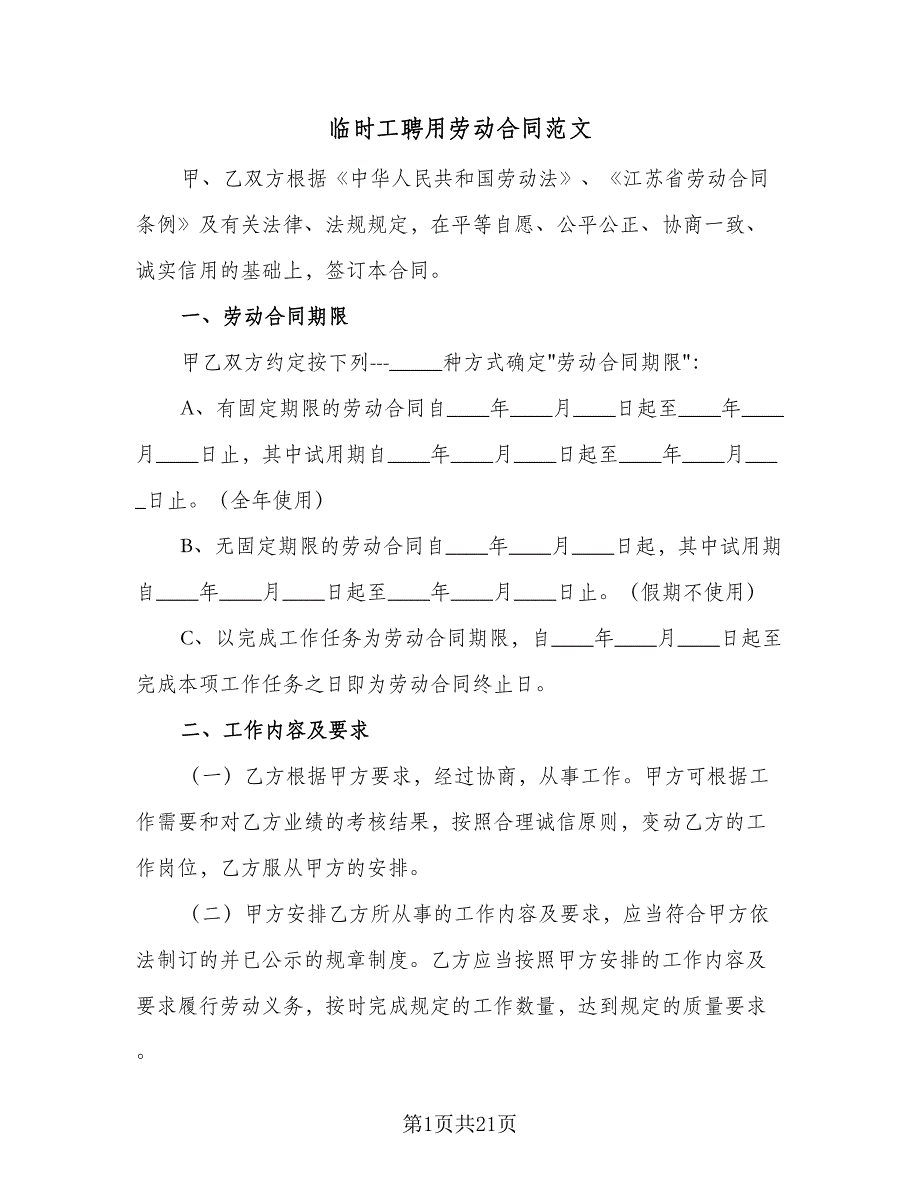 临时工聘用劳动合同范文
甲、乙双方根据《中华人民共和国劳动法》、《江苏省劳动合同
条例》及有关法律、法规规定，在平等自愿、公平公正、协商一致、
诚实信用的基础上，签订本合同。
一、劳动合同期限
甲乙双方约定按下列---_____种方式确定"劳动合同期限"：
A、有固定期限的劳动合同自____年____月____日起至____年____
月____日止，其中试用期自____年____月____日起至____年____月___
_日止。（全年使用）
B、无固定期限的劳动合同自____年____月____日起，其中试用期
自____年____月____日起至____年____月____日止。（假期不使用）
C、以完成工作任务为劳动合同期限，自____年____月____日起至
完成本项工作任务之日即为劳动合同终止日。
二、工作内容及要求
（一）乙方根据甲方要求，经过协商，从事工作。甲方可根据工
作需要和对乙方业绩的考核结果，按照合理诚信原则，变动乙方的工
作岗位，乙方服从甲方的安排。
（二）甲方安排乙方所从事的工作内容及要求，应当符合甲方依
法制订的并已公示的规章制度。乙方应当按照甲方安排的工作内容及
要求履行劳动义务，按时完成规定的工作数量，达到规定的质量要求
。
第1页共21页